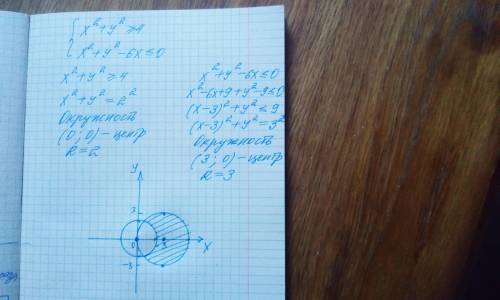 x² + y² ≥ 4
x² + y² - 6x ≤ 0
x² + y² ≥ 4
x² + y² = 2²
Окружность
(0; 0) - центр
R = 2
x² + y² - 6x ≤ 0
x² - 6x + 9 + y² - 9 ≤ 0
(x - 3)² + y² ≤ 9
(x - 3)² + y² = 3²
Окружность
(3; 0) - центр
R = 3
y
3
0
3
x
-3